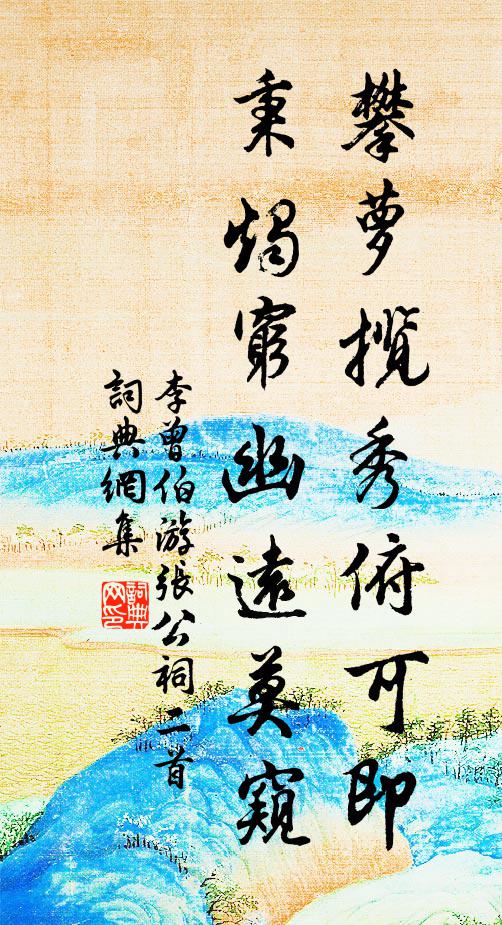 攀萝揽秀俯可即
秉烛穷幽遠莫窺
李曾伯游張公祠二首
詞典網集
詞典